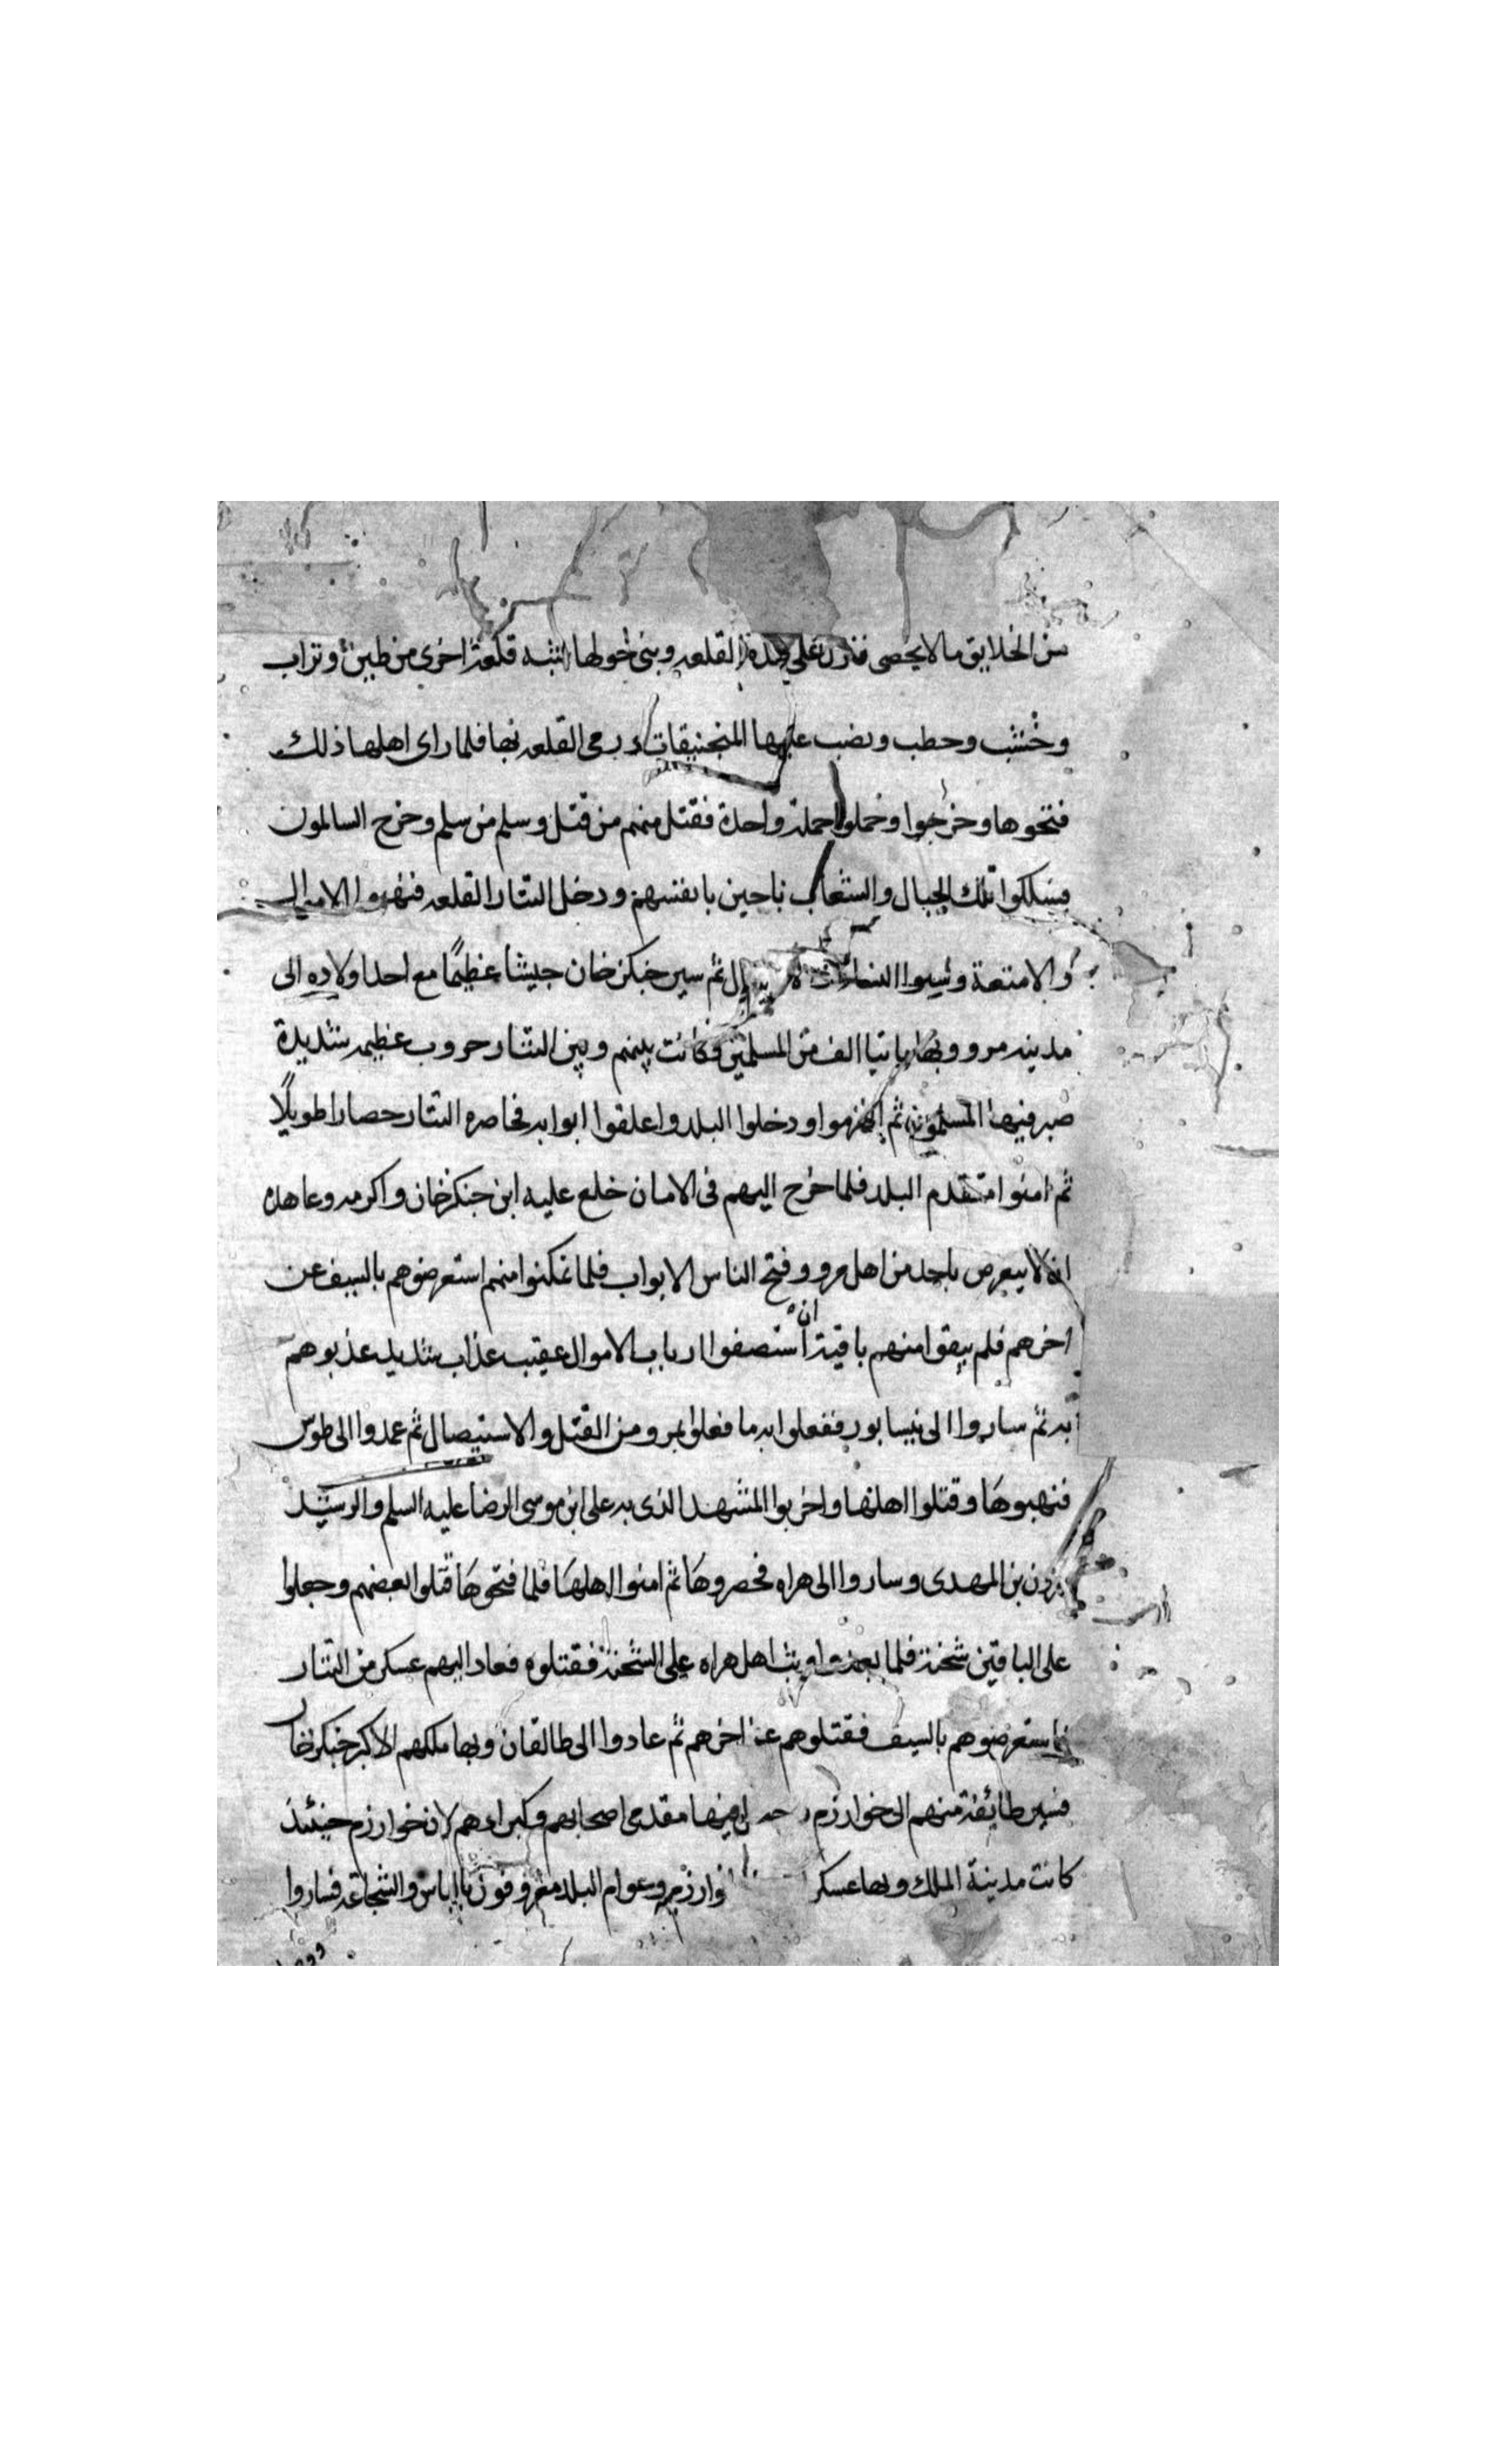 من الخلايق ما لا يحصى فنزل على هذه القلعه وبنى حولها شبه قلعة اخرى من طين وتراب
وخشب وحطب ونصب عليها المنجنيقات ورمى القلعه بها فلما راى اهلها ذلك
فتحوها وخرجوا وحملوا حملة واحدة فقتل منهم من قتل وسلم من سلم وخرج السالمون
فسلكوا تلك الجبال والشعاب ناجين بانفسهم ودخل التتار القلعه فنهبوا الاموال
والامتعة وسبوا النساء ثم سير جنكزخان جيشا عظيما مع احد اولاده الى
مدينه مرو وبها مايتا الف من المسلمين وكانت بينهم وبين التتار حروب عظيمه شديدة
صبر فيها المسلمون ثم انهزموا ودخلوا البلد واغلقوا ابوابه فحاصره التتار حصارا طويلا
ثم امنوا متقدم البلد فلما خرج اليهم في الامان خلع عليه ابن جنكزخان واكرمه وعاهده
انه لا يتعرض باحد من اهل مرو وفتح الناس الابواب فلما تمكنوا منهم استعرضوهم بالسيف عن
اخرهم فلم يبقوا منهم باقية ان استصفوا ارباب الاموال عقيب عذاب شديد عذبوهم
به ثم ساروا الى نيسابور ففعلوا به ما فعلوا بمرو من القتل والاستيصال ثم عمدوا الى طوس
فنهبوها وقتلوا اهلها واخربوا المشهد الذى به على ابن موسى الرضا عليه السلم والرشيد
هرون بن المهدى وساروا الى هراه فحصروها ثم امنوا اهلها فلما فتحوها قتلوا بعضهم وجعلوا
على الباقين شحنة فلما بعدوا وثب اهل هراه على الشحنة فقتلوه فعاد اليهم عسكر من التتار
فاستعرضوهم بالسيف فقتلوهم عن اخرهم ثم عادوا الى طالقان وبها ملكهم الاكبر جنكزخان
فسير طائفة منهم الى خوارزم وجعل فيها مقدمى اصحابهم وكبراءهم لان خوارزم حينئذ
كانت مدينة الملك وبها عسكر خوارزم وعوام البلد معروفون بالباس والشجاعة فساروا